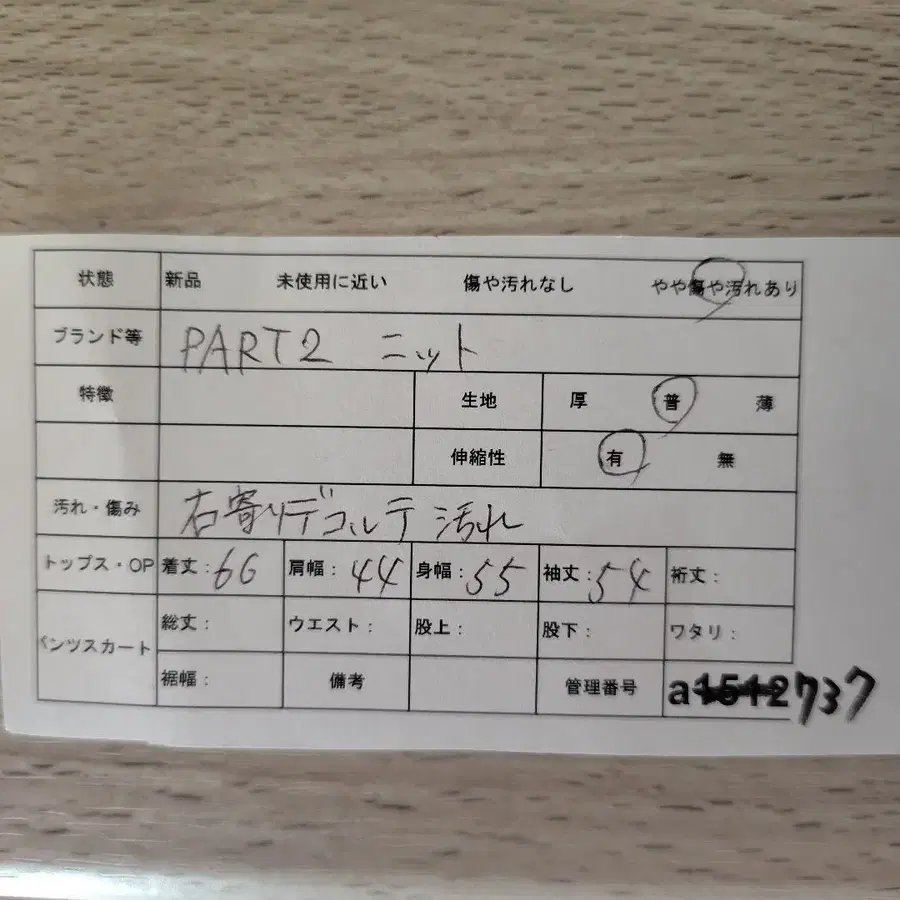 状態 新品 未使用に近い 傷や汚れなし やや傷や汚れあり
ブランド等 PART2 ニット
特徴 生地 厚 普 薄
伸縮性 有 無
汚れ・傷み 右寄りデコルテ 汚れ
トップス・OP 着丈:66 肩幅:44 身幅:55 袖丈:54 裄丈:
パンツスカート 総丈: ウエスト: 股上: 股下: ワタリ:
裾幅: 備考 管理番号 a1512737